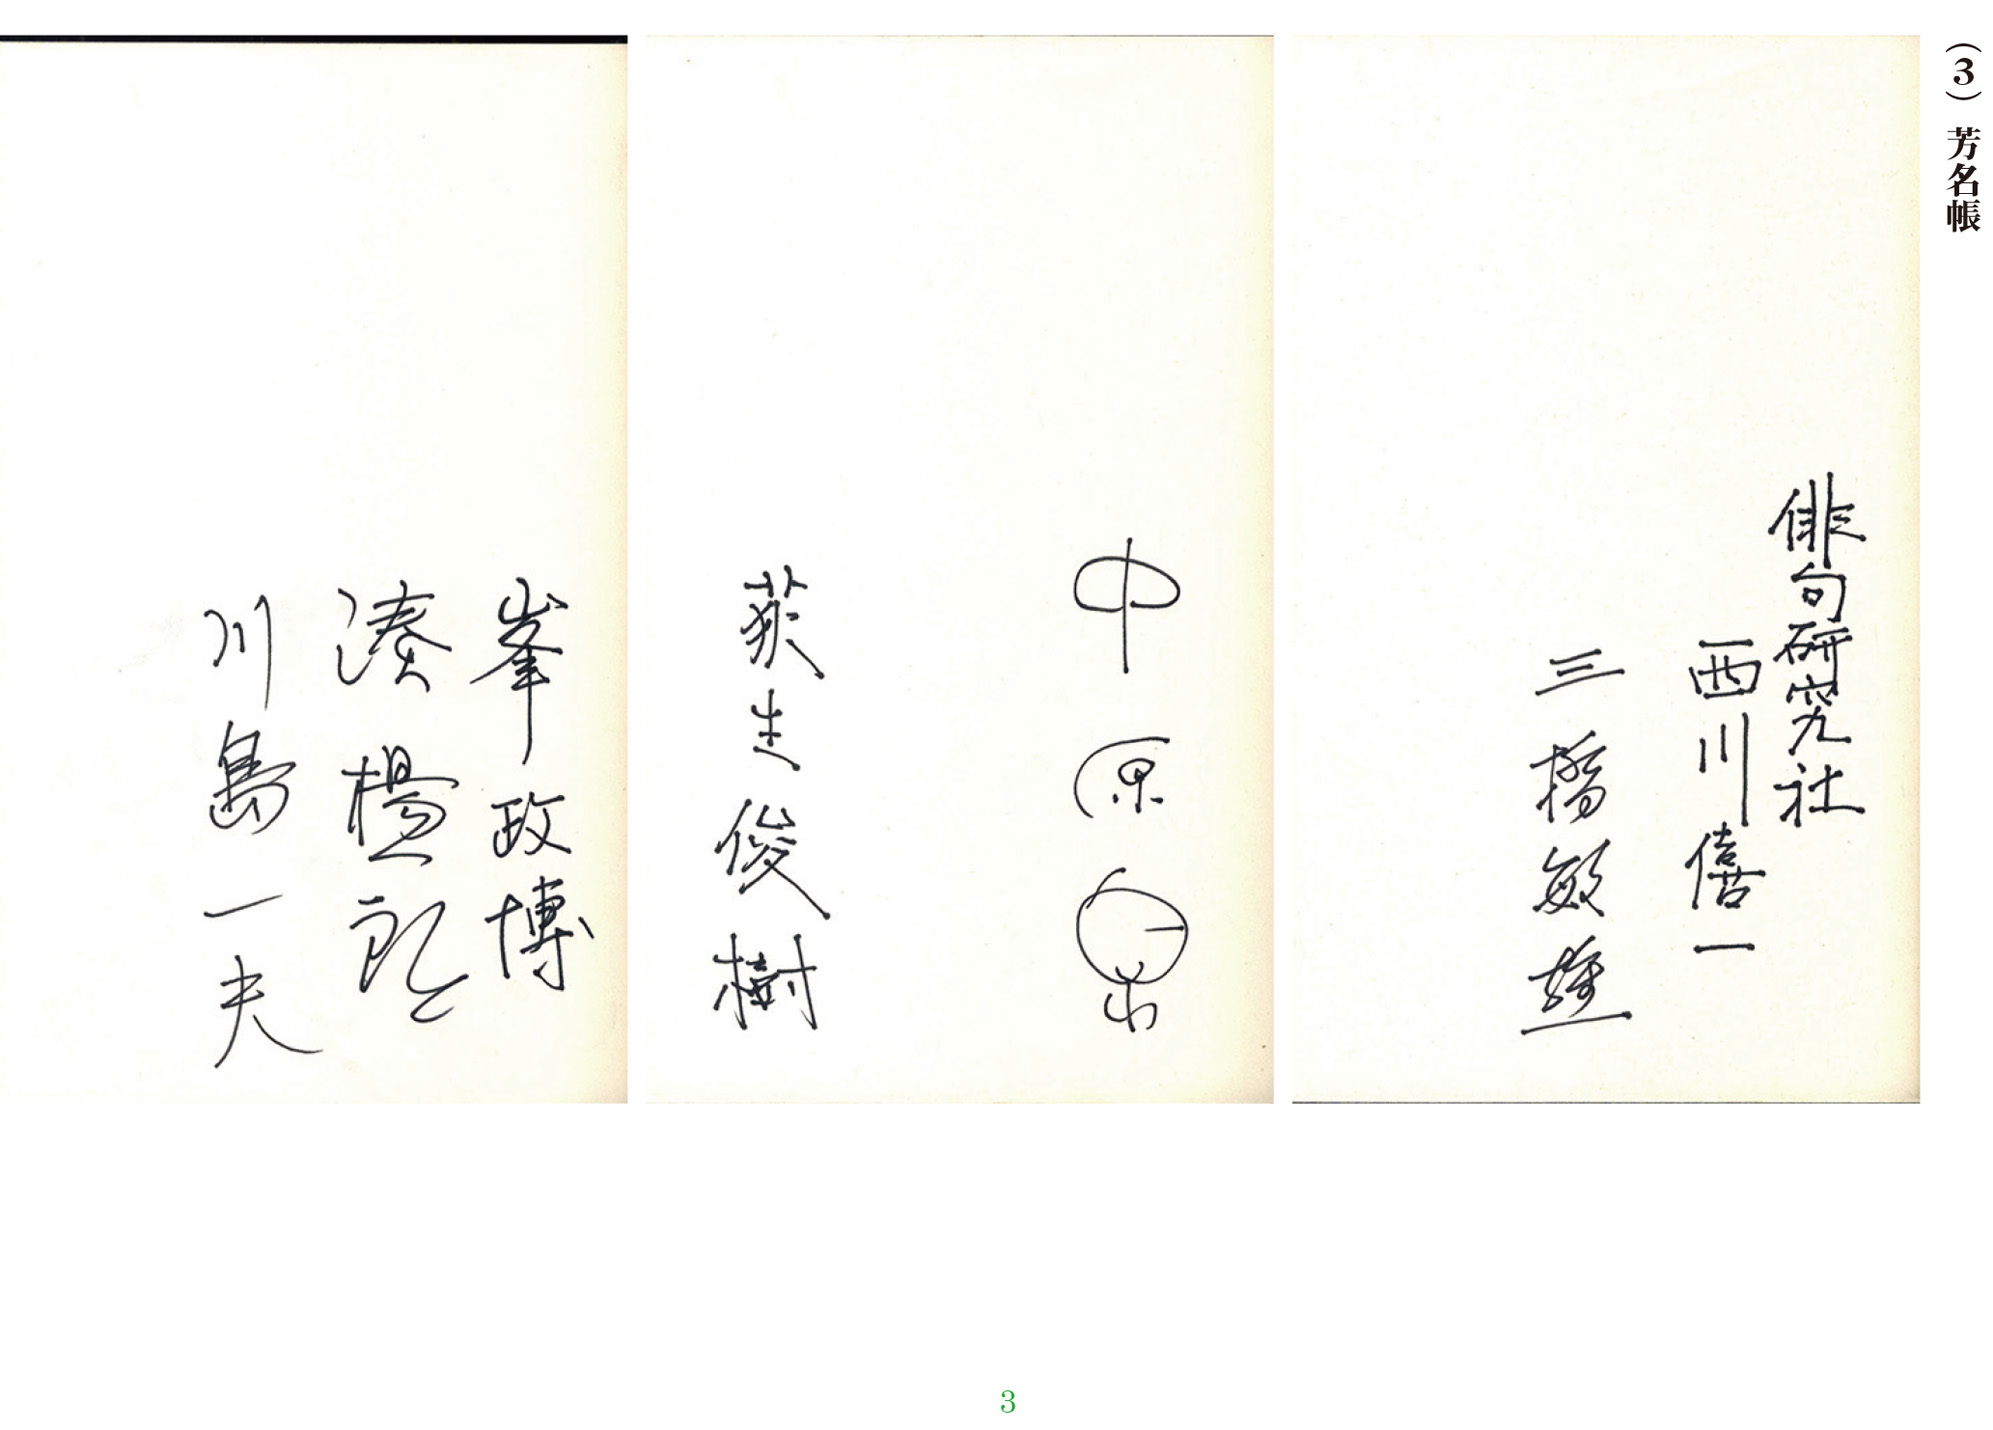 (3) 芳名帳
俳句研究社
西川僖一
三橋敏雄
中原
荻生俊樹
峯政博
湊楊一郎
川島一夫
3